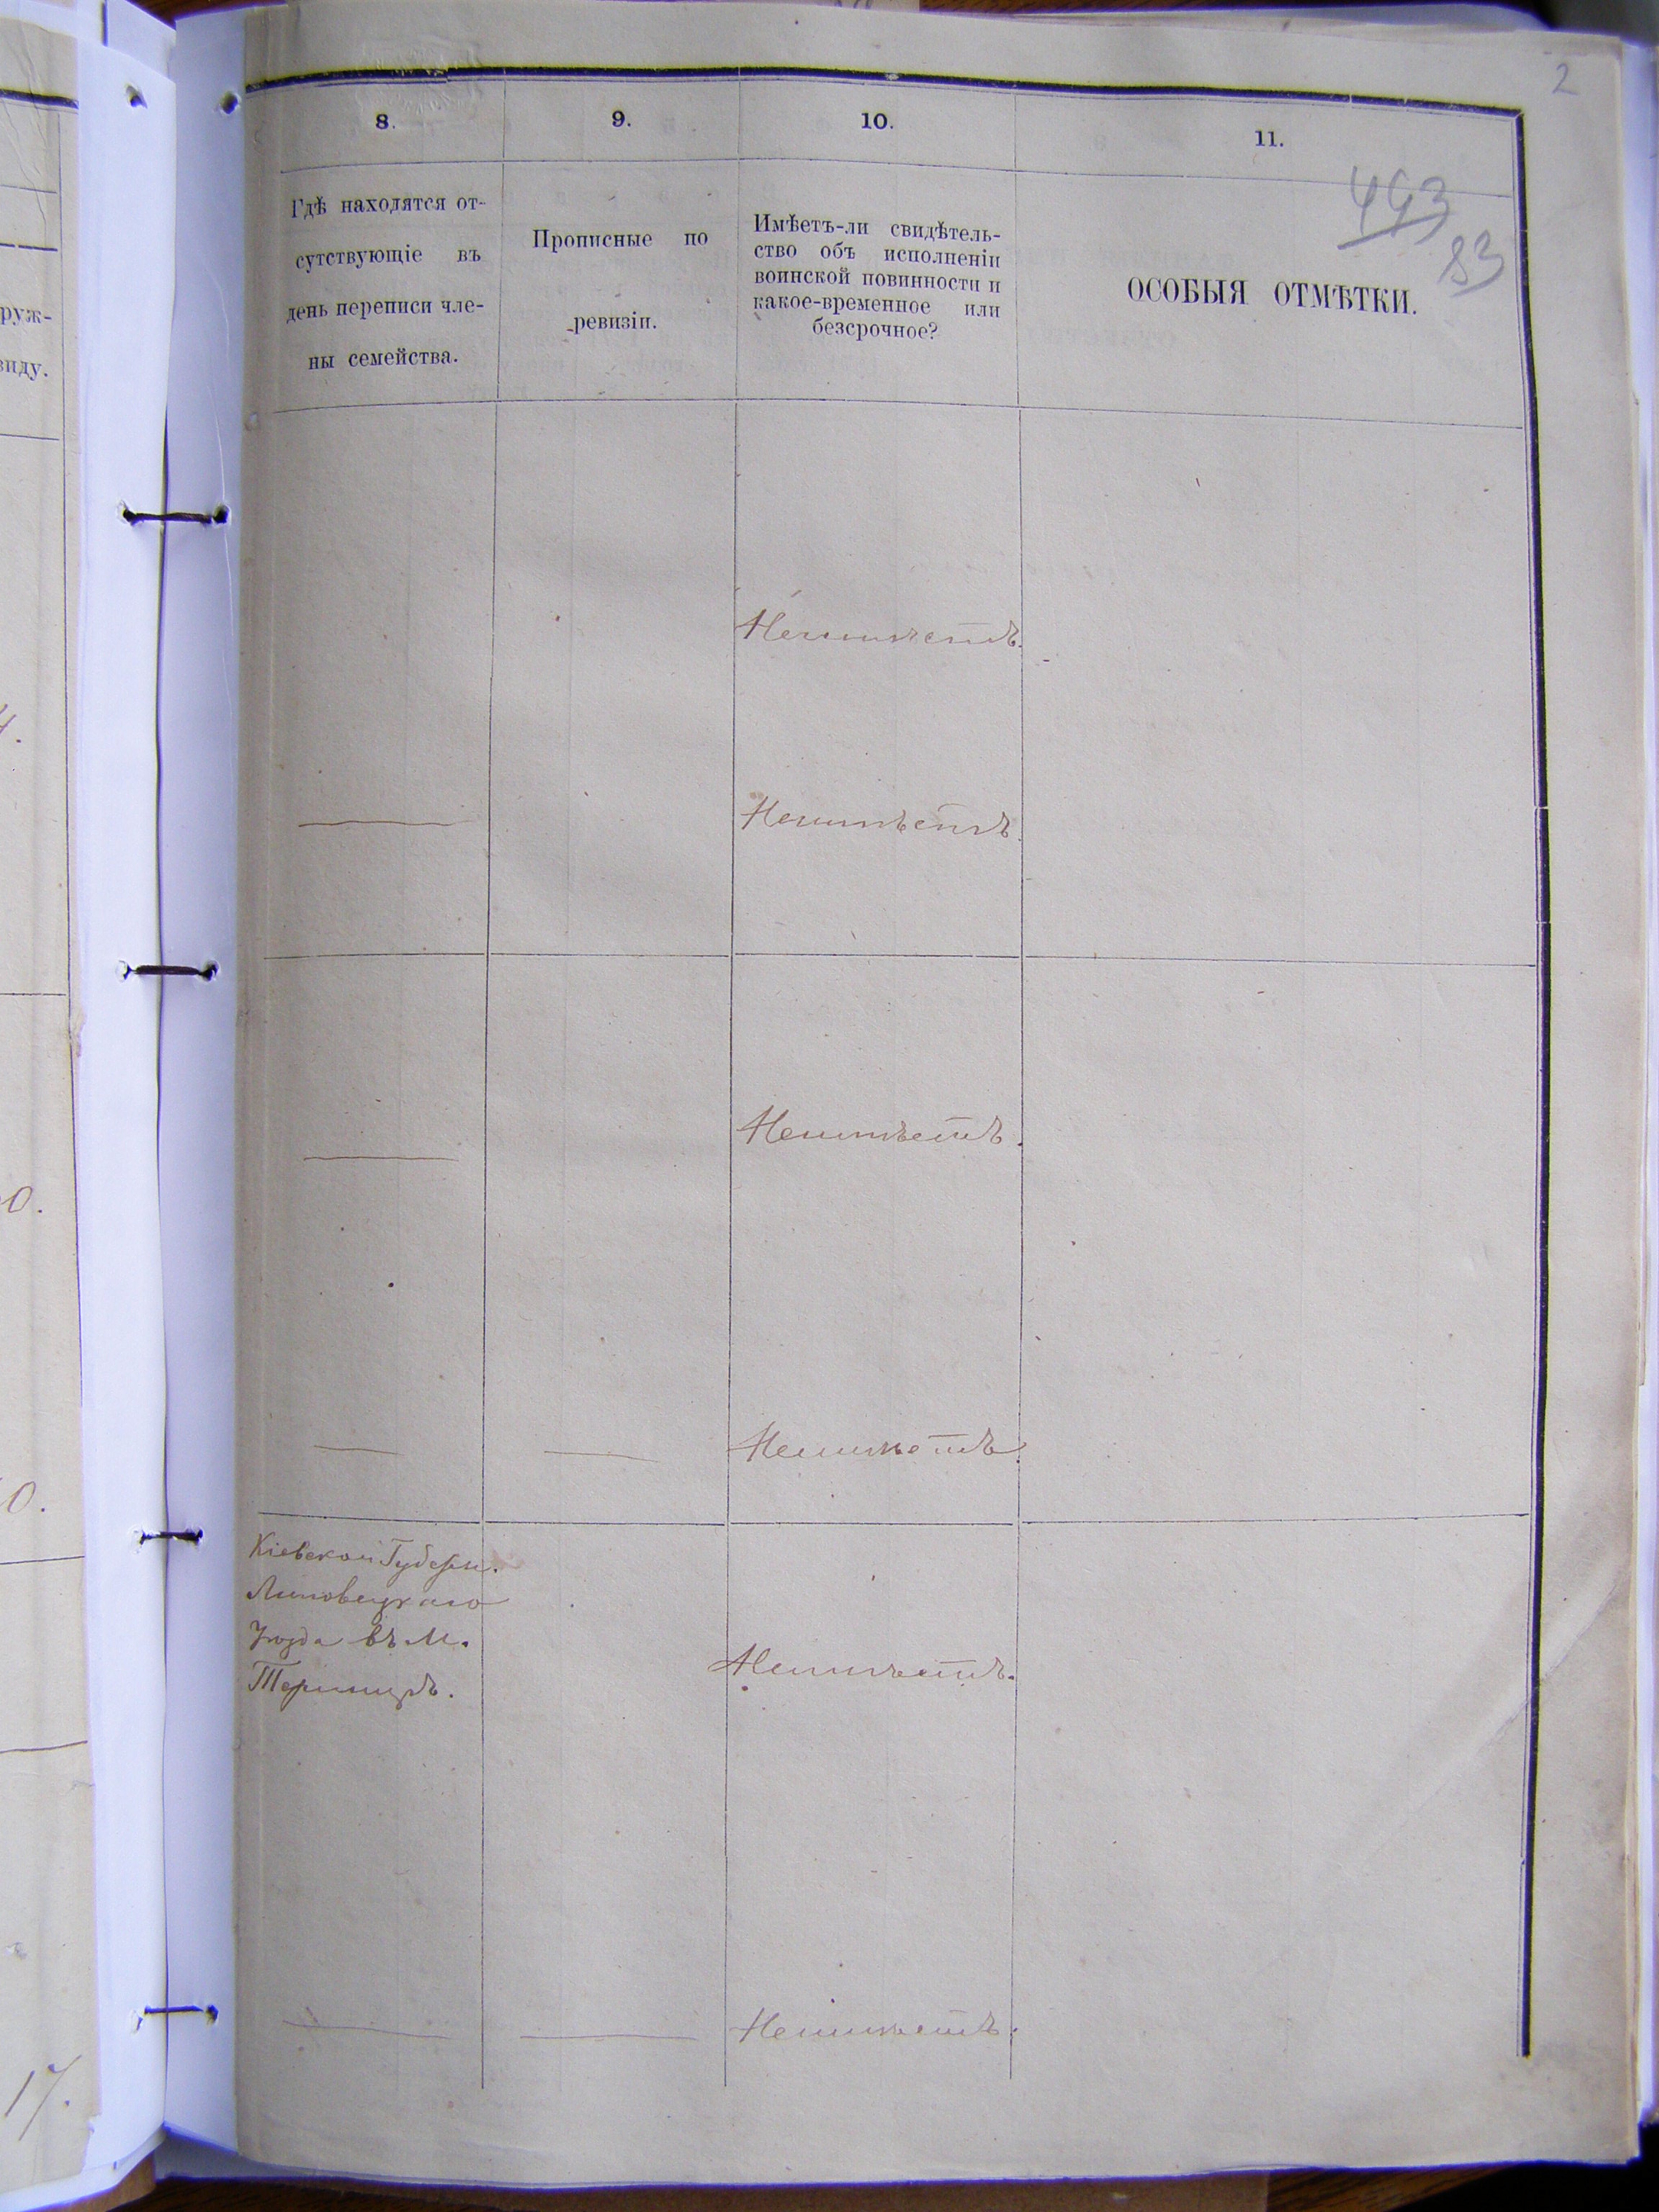 2
8.
9.
10.
11.
493
83
Гдѣ находятся от-
сутствующіе въ
день переписи чле-
ны семейства.
Прописные по
ревизіи.
Имѣетъ-ли свидѣтель-
ство объ исполненіи
воинской повинности и
какое-временное или
безсрочное?
ОСОБЫЯ ОТМѢТКИ.
руж-
виду.
4.
Неимѣетъ.
Неимѣетъ.
0.
Неимѣетъ.
0.
Неимѣетъ.
Кіевской Губерн.
Липовецкаго
Уѣзда въ М.
Неимѣетъ.
17.
Неимѣетъ.